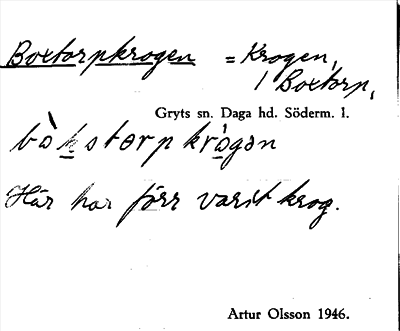 Boxtorpkrogen = Krogen,
/ Boxtorp,
Gryts sn. Daga hd. Söderm. l.
bòkstorpkrågən
Här har förr varit krog.
Artur Olsson 1946.